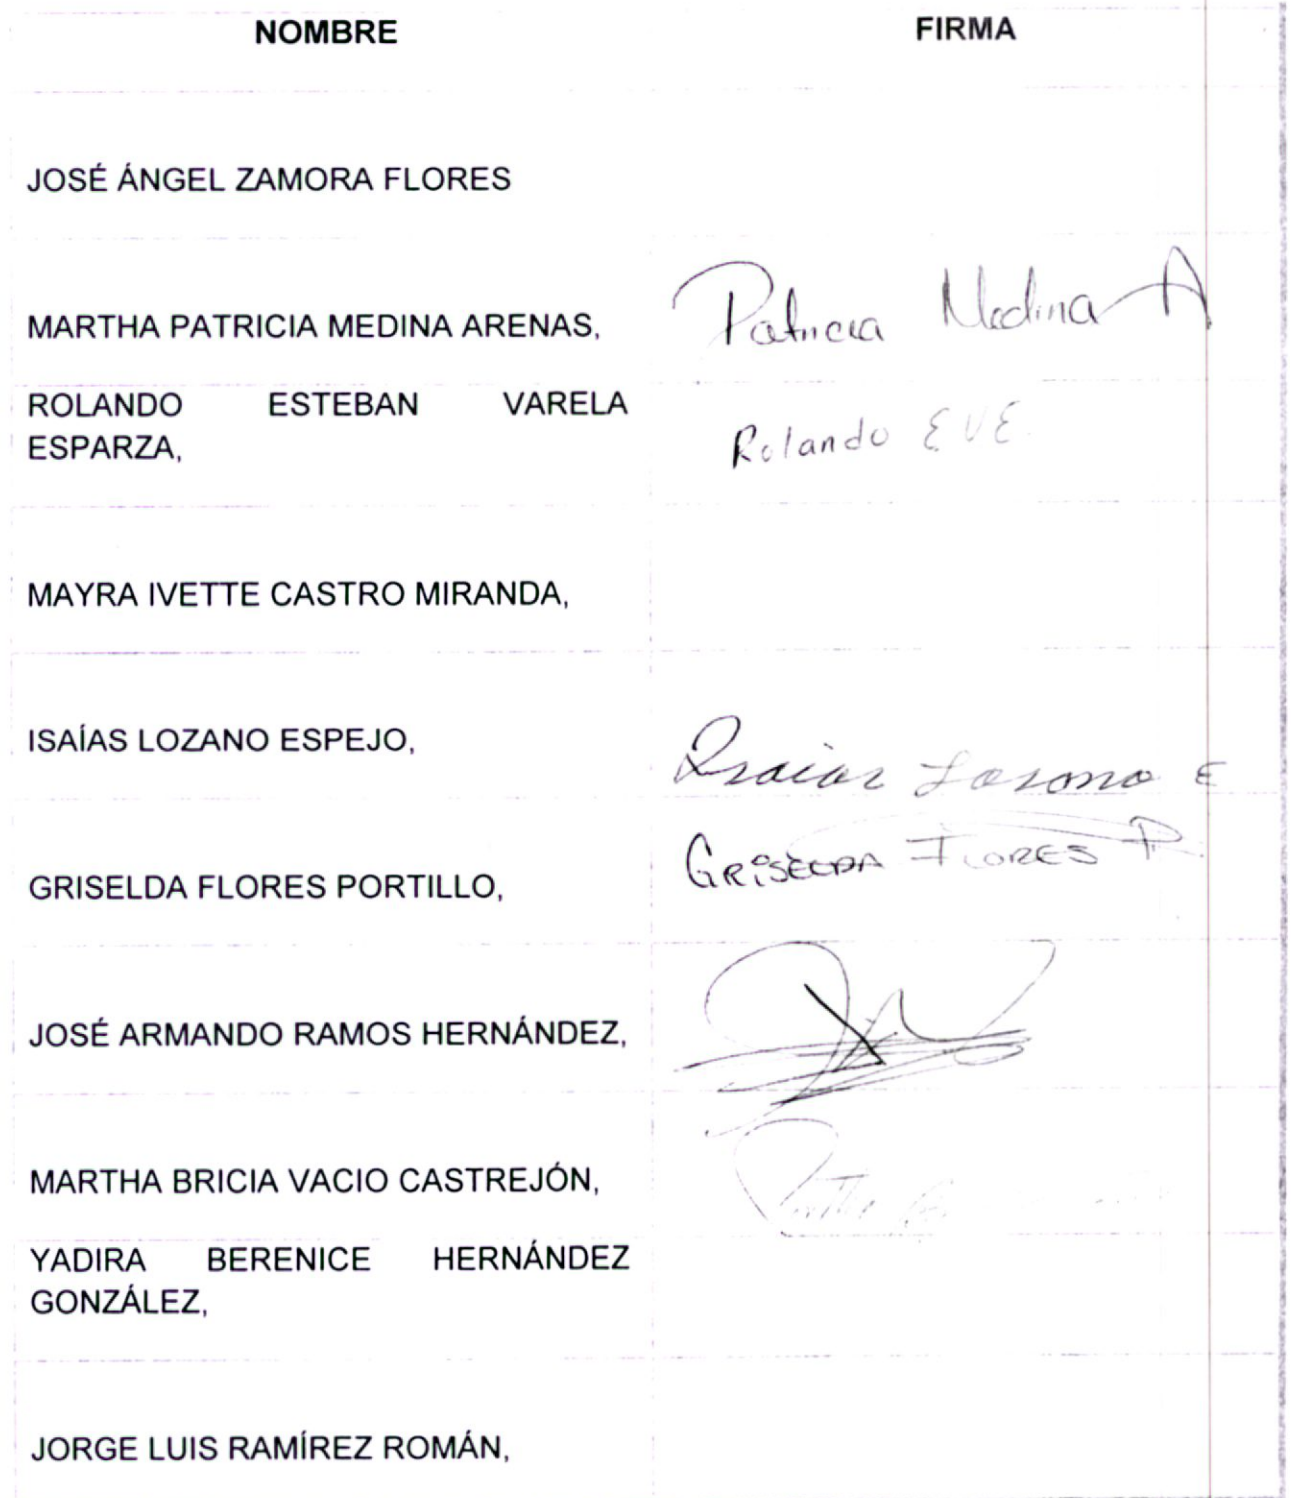 NOMBRE FIRMA
JOSÉ ÁNGEL ZAMORA FLORES
MARTHA PATRICIA MEDINA ARENAS, Patricia Medina A
ROLANDO ESTEBAN VARELA Rolando EVE.
ESPARZA,
MAYRA IVETTE CASTRO MIRANDA,
ISAÍAS LOZANO ESPEJO, Isaias Lozano E
GRISELDA FLORES PORTILLO, GRiSELDA FLORES P.
JOSÉ ARMANDO RAMOS HERNÁNDEZ,
MARTHA BRICIA VACIO CASTREJÓN,
YADIRA BERENICE HERNÁNDEZ
GONZÁLEZ,
JORGE LUIS RAMÍREZ ROMÁN,